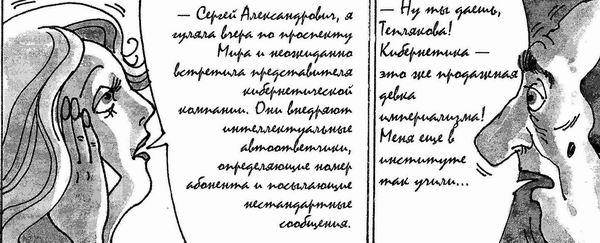 — Сергей Александрович, я
гуляла вчера по проспекту
Мира и неожиданно
встретила представителя
кибернетической
компании. Они внедряют
интеллектуальные
автоответчики,
определяющие номер
абонента и посылающие
нестандартные
сообщения.
— Ну ты даешь,
Теплякова!
Кибернетика —
это же продажная
девка
империализма!
Меня еще в
институте
так учили...